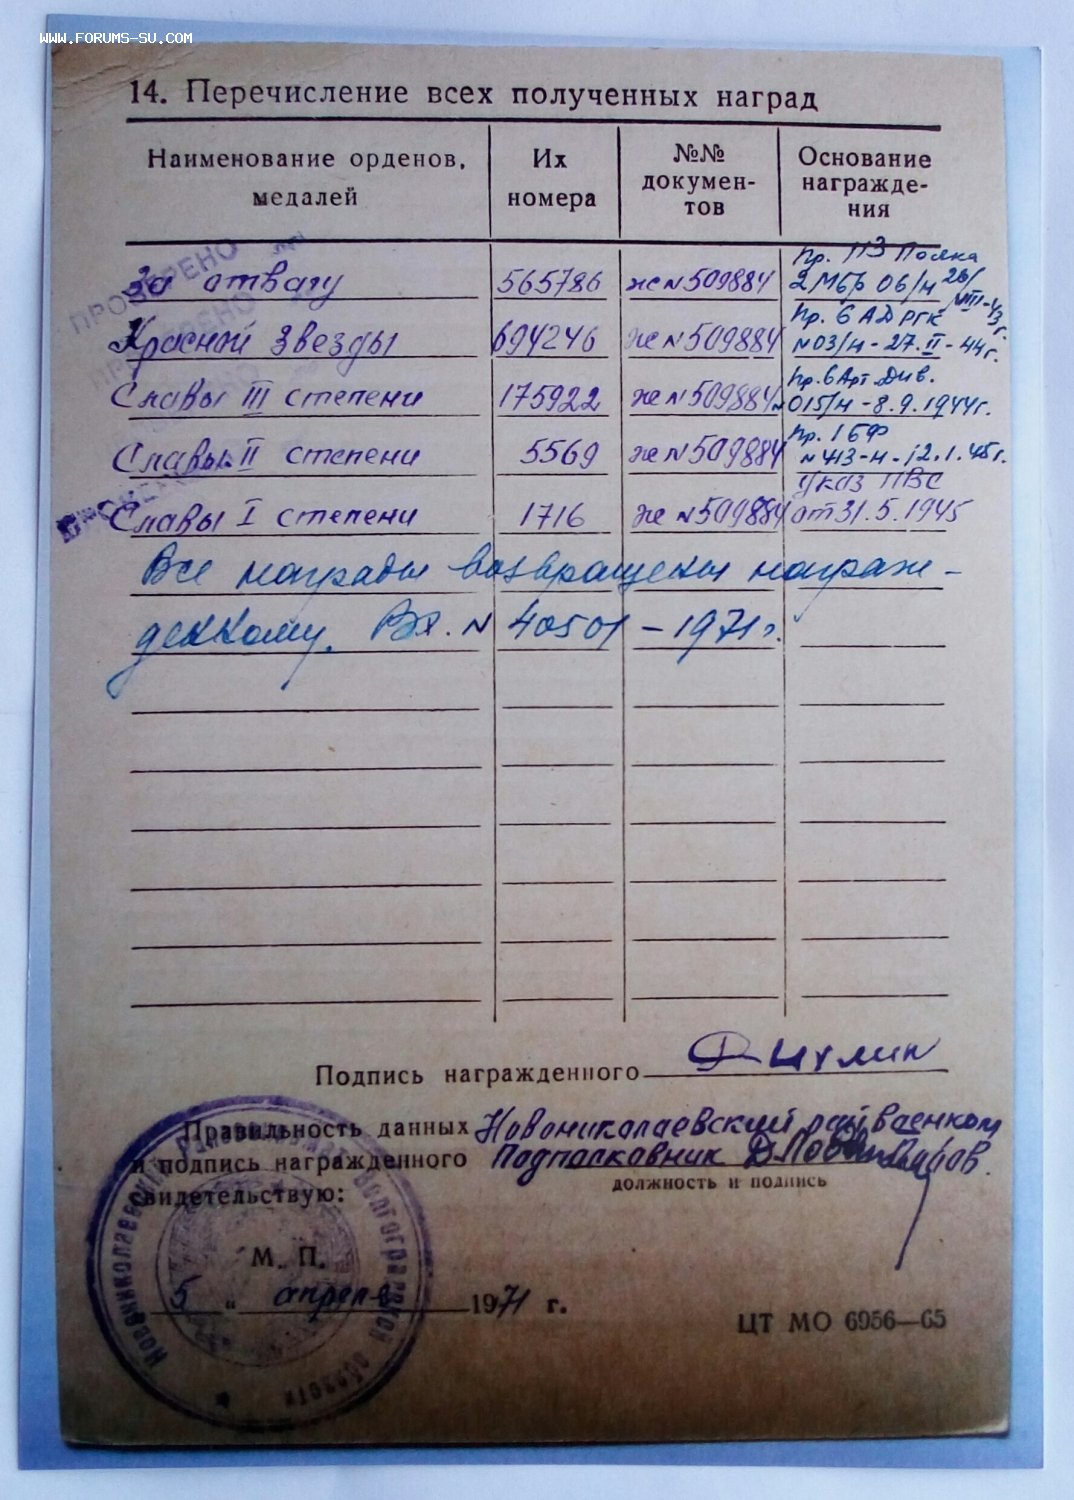 WWW.FORUMS-SU.COM
14. Перечисление всех полученных наград
Наименование орденов, медалей
Их номера
№№ докумен- тов
Основание награжде- ния
ПРОВЕРЕНО
За отвагу 565786 ж N 509884 Пр. 113 Полка 2 МБр 06/н 28/VIII-43 г.
Красной Звезды 694246 ж N 509884 Пр. 6 АД РГК N 03/н - 27.II-44 г.
Славы III степени 175922 ж N 509884 Пр. 6 Арт. Див. N 015/н - 8.9.1944 г.
Славы II степени 5569 ж N 509884 Пр. 1БФ N 413-н - 12.1.45 г.
Славы I степени 1716 ж N 509884 Указ ПВС от 31.5.1945
Все награды возвращены награж-
денному. Вх. N 40501 - 1971 г.
Подпись награжденного
Правильность данных Новониколаевский райвоенком
и подпись награжденного Подполковник
должность и подпись
видетельствую:
М. П.
5 „ апреля 1971 г.
ЦТ МО 6956—65
Новониколаевский Волгоградской области